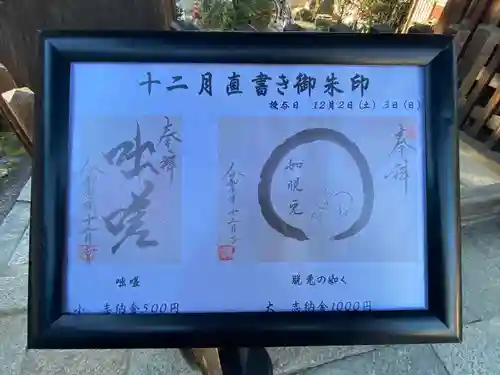 十二月直書き御朱印
授与日 12月2日(土) 3日(日)
奉拝
咄嗟
令和五年十二月
奉拝
如脱兎
令和五年十二月
咄嗟
脱兎の如く
小 志納金500円
大 志納金1000円